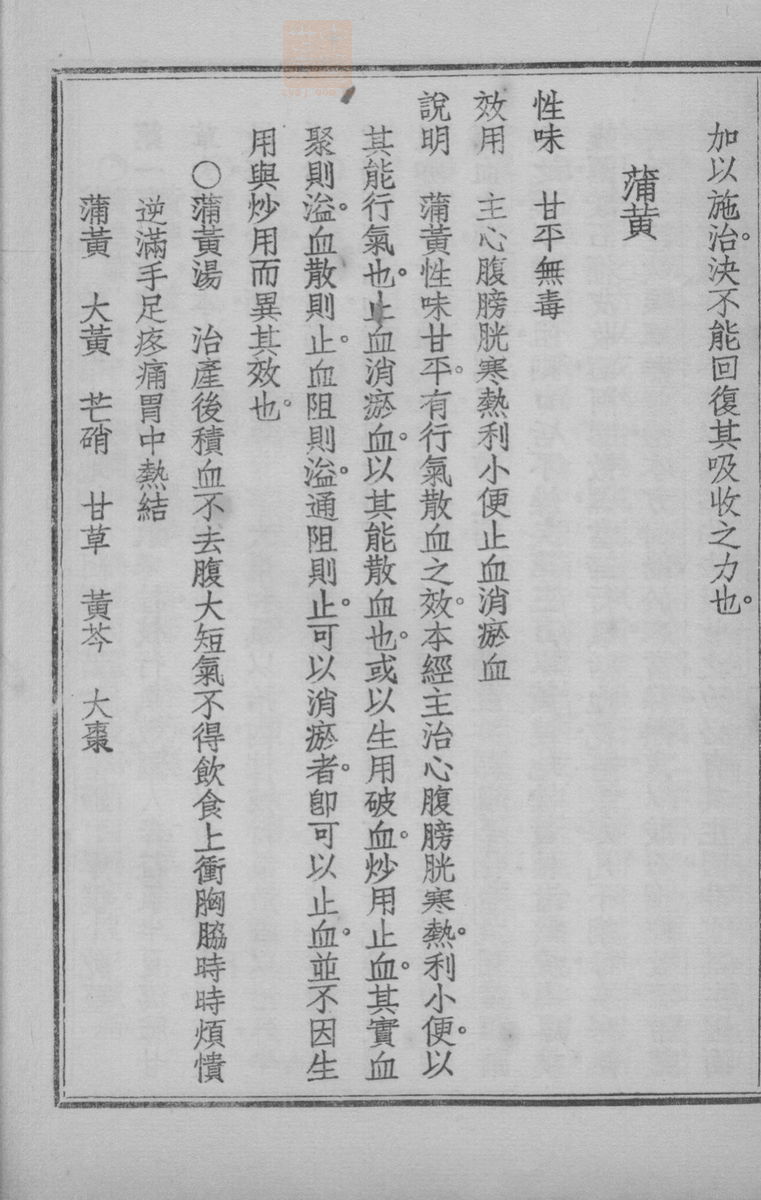 加以施治。決不能回復其吸收之力也。
蒲黃
性味　甘平無毒
效用　主心腹膀胱寒熱利小便止血消瘀血
說明　蒲黃性味甘平。有行氣散血之效。本經主治心腹膀胱寒熱。利小便。以
其能行氣也。止血消瘀血。以其能散血也。或以生用破血。炒用止血。其實血
聚則溢。血散則止。血阻則溢。通阻則止。可以消瘀者。卽可以止血。並不因生
用與炒用而異其效也。
○蒲黃湯　治產後積血不去腹大短氣不得飲食上衝胸脇時時煩憒
逆滿手足疼痛胃中熱結
蒲黃　大黃　芒硝　甘草　黃芩　大棗